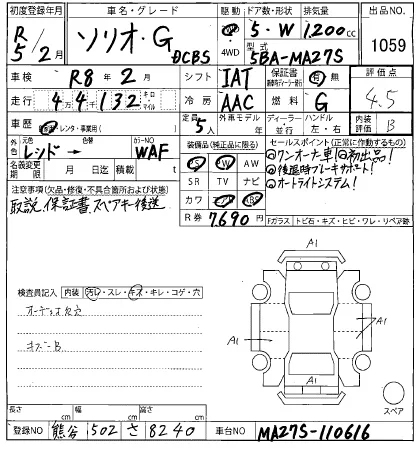 初度登録年月 車名・グレード 駆動 ドア数・形状 排気量 出品NO.
R 5/2月 ソリオ・G DCBS 4WD 5・W 1,200cc 1059
型式 5BA-MA27S
車検 R8年2月 シフト IAT 保証書 有 無 評価点
走行 44千132 キロ マイル 冷房 AAC 燃料 G 4.5
車歴 レンタ・事業用( ) 定員 5人 外車モデル 年 ディーラー 並行 ハンドル 左・右 内装評価 B
外色 元色 レッド→ 色替 カラーNO WAF 装備品(純正品に限る) セールスポイント(正常に作動するもの)
名義変更期限 月 日 迄 積載 t PS PW AW
SR TV ナビ
◎ワンオーナー車!◎初出品!
◎後退時ブレーキサポート!
◎オートライトシステム!
注意事項(欠品・修復・不具合箇所および状態) カワ
取説、保証書、スペアキー後送
R券 7,690円 Fガラス トビ石・キズ・ヒビ・ワレ・リペア跡
検査員記入 内装 汚れ・スレ・キズ・キレ・コゲ・穴
キズーB
A1
A1
A1
A1
スペア
長さ cm 幅 cm 高さ cm
登録NO 熊谷 502 さ 8240 車台NO MA27S-110616